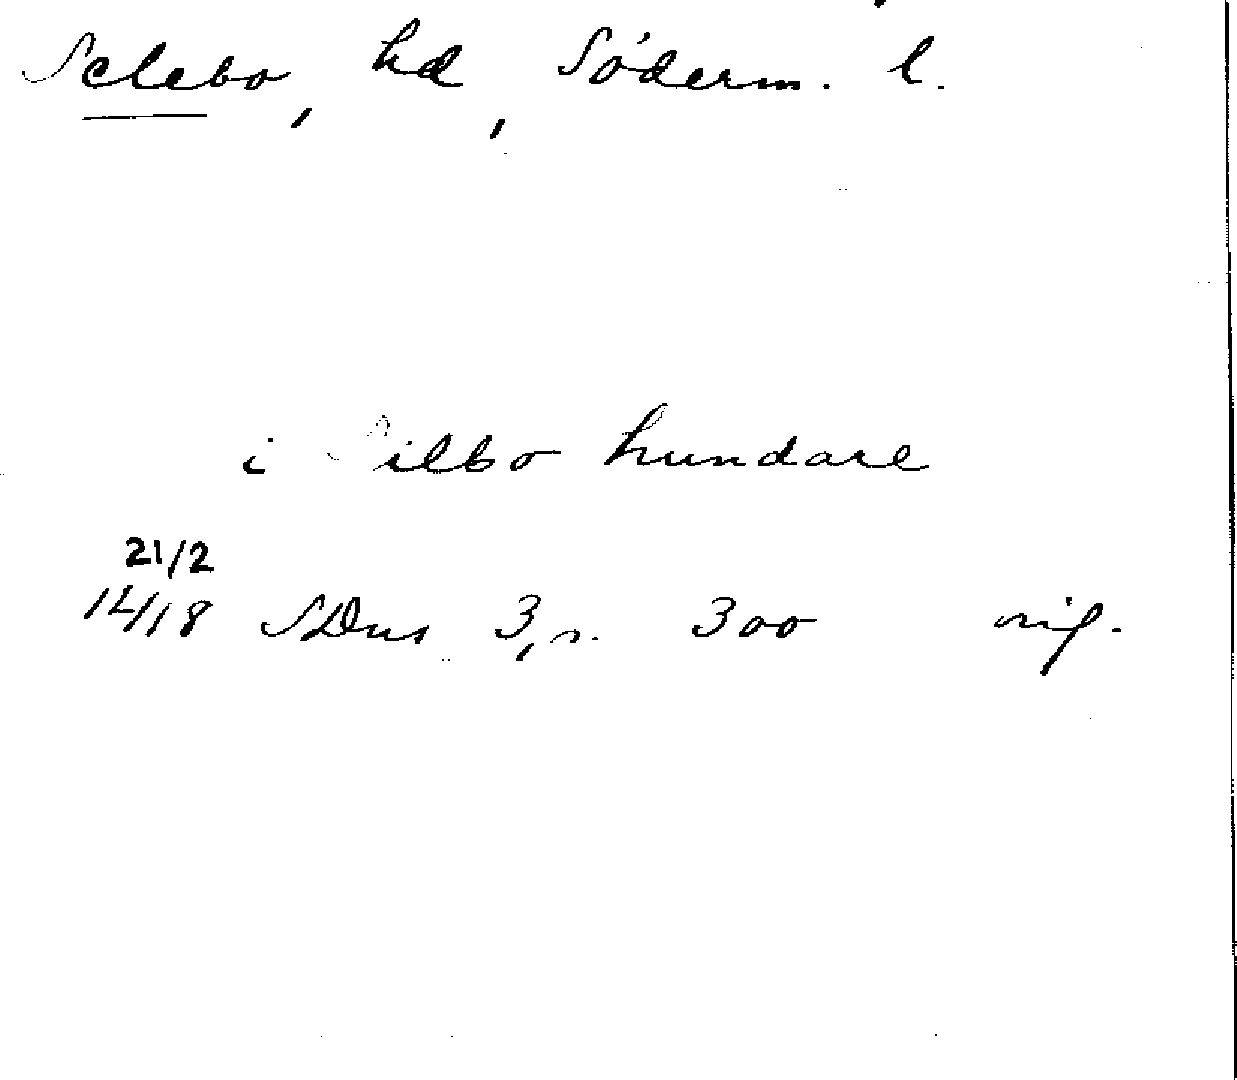 Selebo, hd, Söderm. l.
i Silbo hundare
21/2
14/18 SDns 3, s. 300 orig.